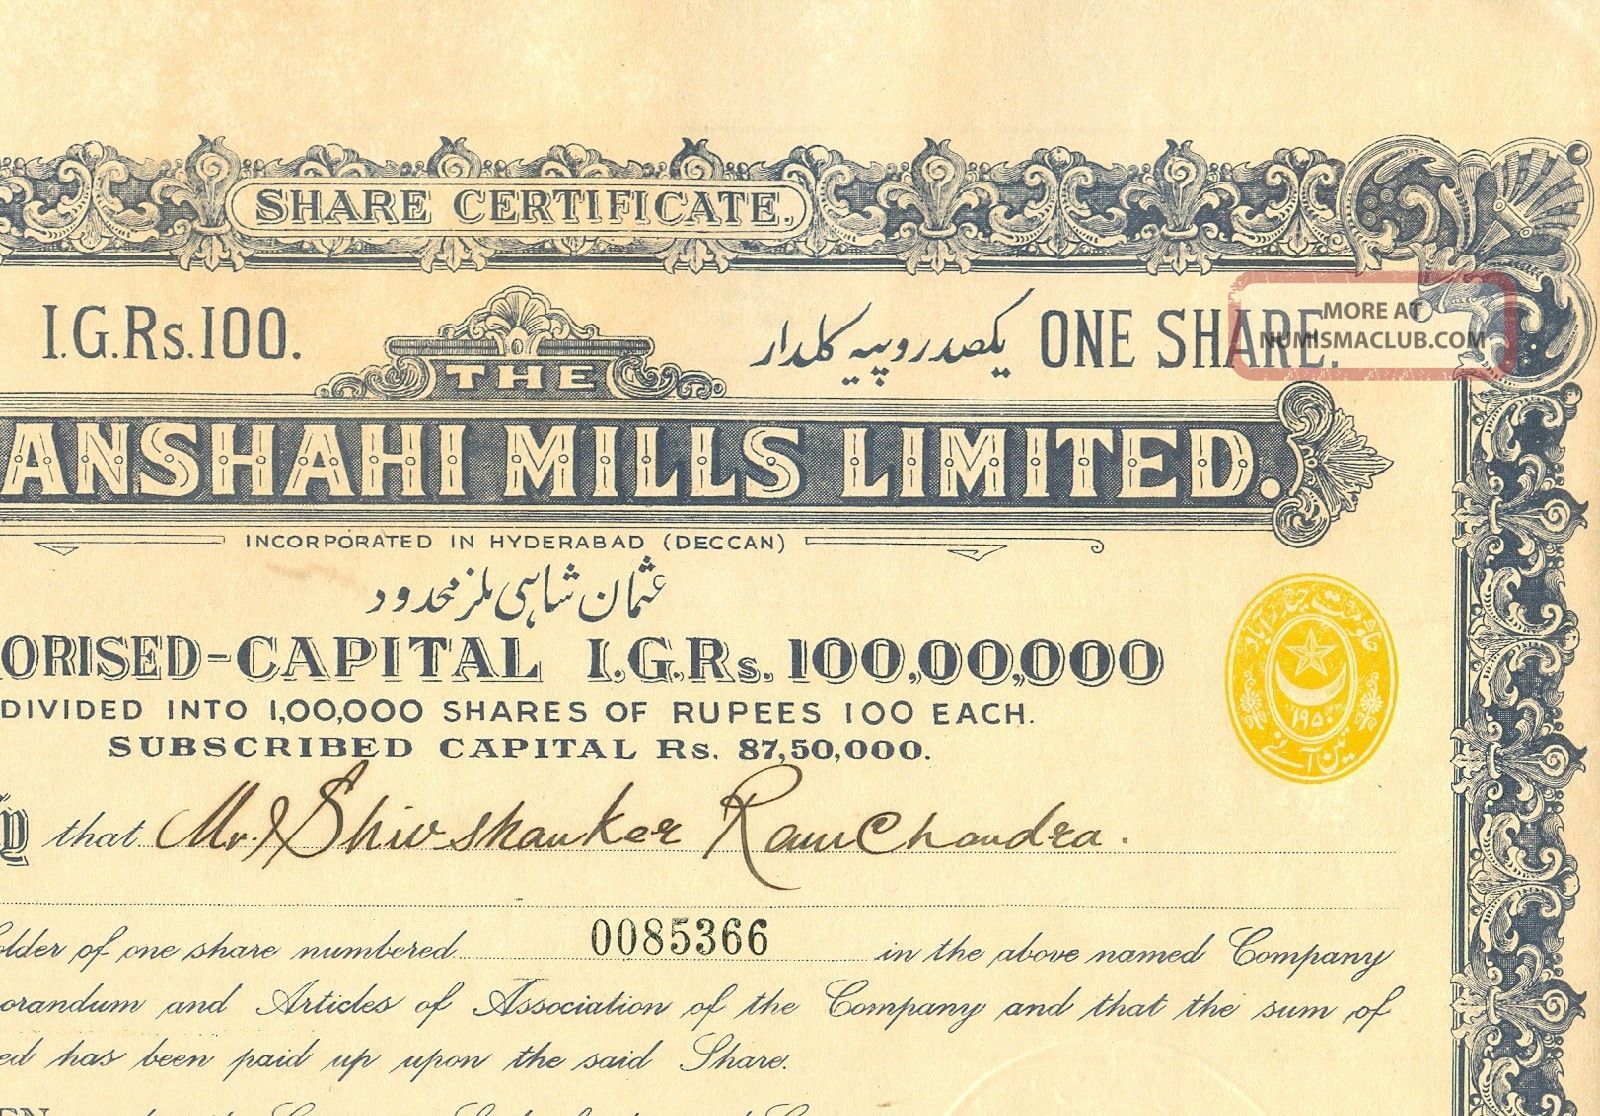 SHARE CERTIFICATE.
I.G.Rs.100.
یکصد روپیہ کلدار ONE SHARE.
MORE AT
NUMISMACLUB.COM
THE
ANSHAHI MILLS LIMITED.
INCORPORATED IN HYDERABAD (DECCAN)
عثمان شاہی ملز محدود
ORISED-CAPITAL I.G.Rs. 100,00,000
DIVIDED INTO 1,00,000 SHARES OF RUPEES 100 EACH.
SUBSCRIBED CAPITAL Rs. 87,50,000.
۱۹۵۰
تین آنے
that Mr. Shivshanker Ramchandra.
older of one share numbered 0085366 in the above named Company
orandum and Articles of Association of the Company and that the sum of
ed has been paid up upon the said Share.